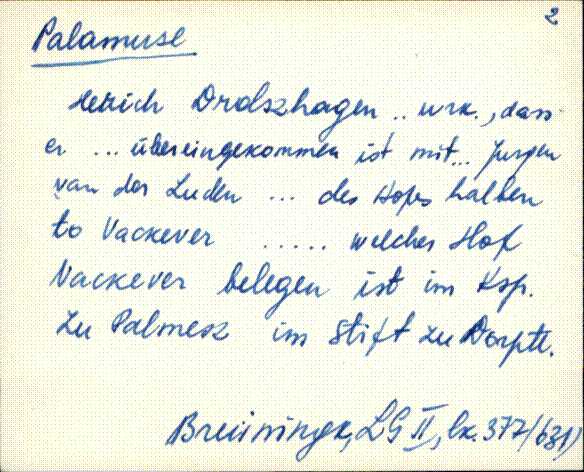 2
Palamuse
Hetrich Drolszhagen .. urk., dass
er ... übereingekommen ist mit... Jurgen
van der Luden ... des Hofes halben
to Vackever ..... welcher Hof
Vackever belegen ist im Ksp.
zu Palmesz im Stift zu Dorptt.
Breiningk, LG II, lk. 377/(631)